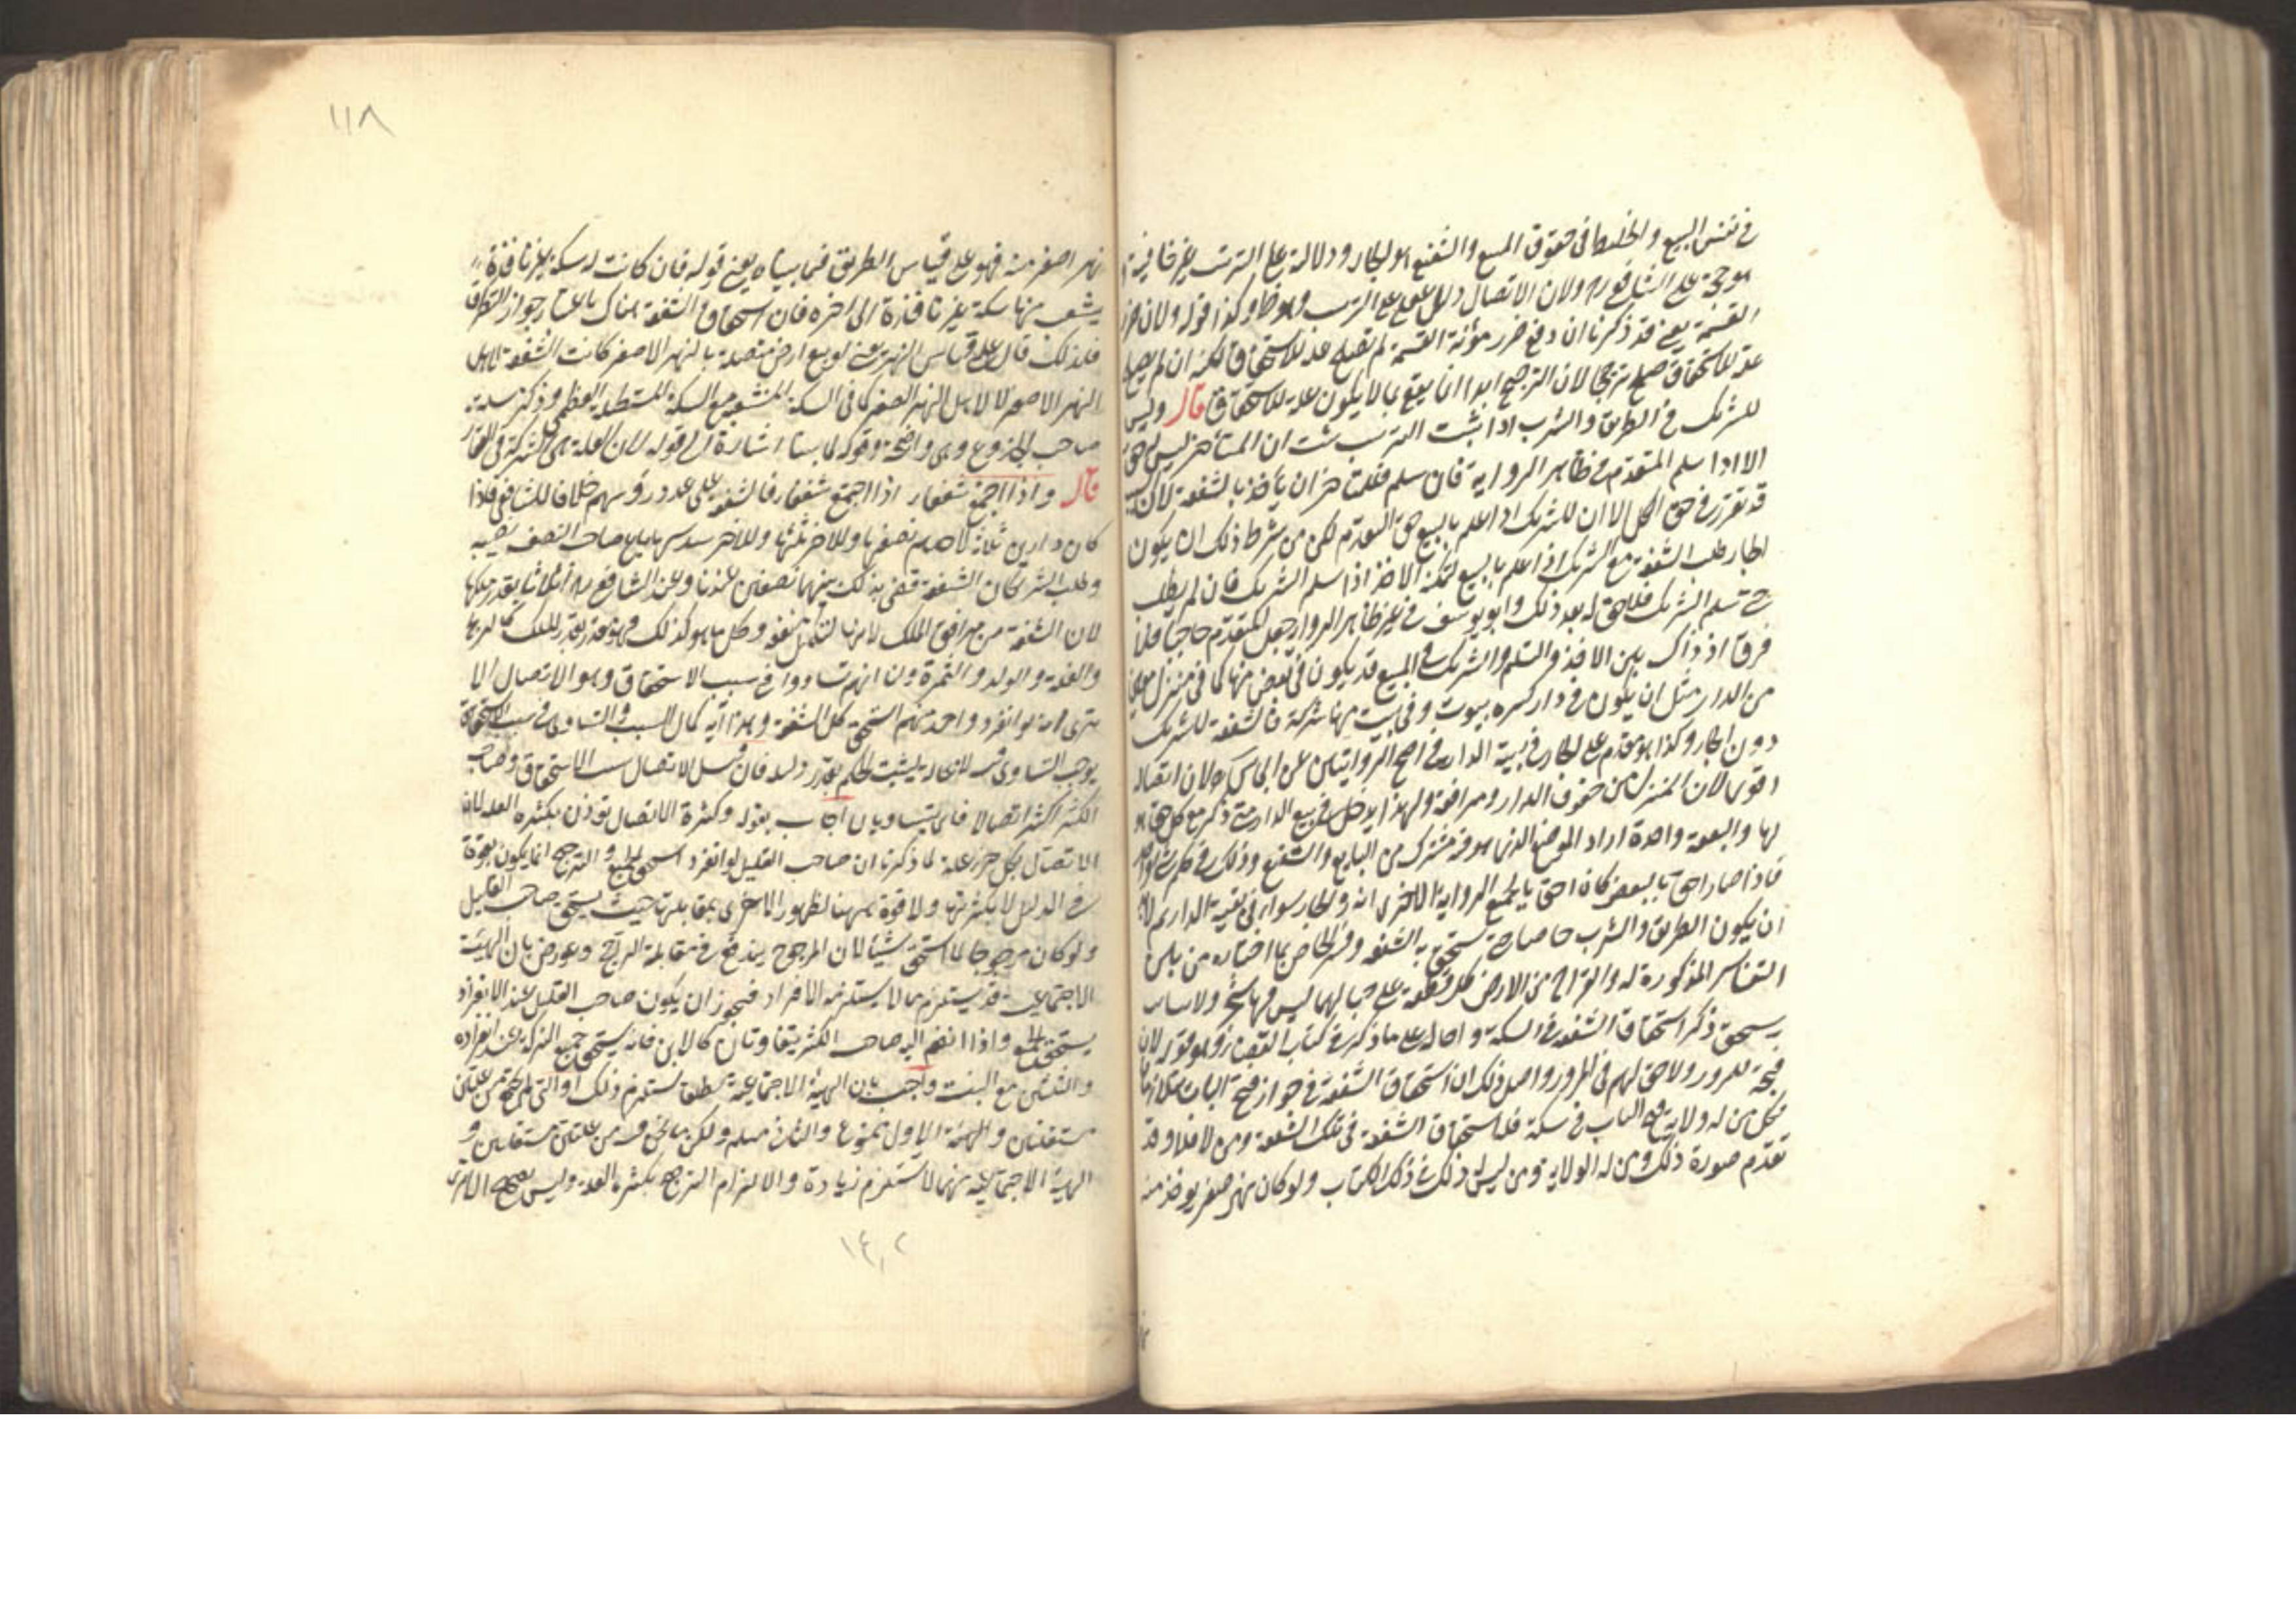 في نفس المبيع والخليط في حقوق المبيع والشفيع هو الجار ودلالته على الترتيب غير خافية
هو حجة على الشافعي ره ولان الاتصال دليل على الترتيب وهو ظاهر وكذا قوله ولان ضرر
القسمة يعني قد ذكرنا ان دفع ضرر مؤنة القسمة لم يصلح علة للاستحقاق لكنه ان لم يصلح
علة للاستحقاق صلح مرجحا لان الترجيح ابدا انما يقع بما لا يكون علة للاستحقاق قال وليس
للشريك في الطريق والشرب اذا ثبت الترتيب ثبت ان المتأخر ليس له حق
الا اذا سلم المتقدم في ظاهر الرواية فان سلم فللمتأخر ان يأخذ بالشفعة لان السبب
قد تقرر في حق الكل الا ان للشريك حق التقدم لكن من شرط ذلك ان يكون
الجار طلب الشفعة مع الشريك اذا علم بالبيع ليمكنه الاخذ اذا سلم الشريك فان لم يطلب
حتى سلم الشريك فلا حق له بعد ذلك وابو يوسف في غير ظاهر الرواية جعل المتقدم حاجبا فلا
فرق اذ ذاك بين الاخذ والتسليم والشريك في المبيع قد يكون في بعض منها كما في منزل معين
من الدار مثل ان يكون في دار كبيرة بيوت وفي بيت منها شركة فالشفعة للشريك
دون الجار وكذا هو مقدم على الجار في بقية الدار في اصح الروايتين عن ابي يوسف لان اتصاله
اقوى لان المنزل من حقوق الدار ومرافقه ولهذا يدخل في بيع الدار متى ذكر مع كل حق هو
لها والبقعة واحدة اراد الموضع الذي هو فيه مشترك من البايع والشفيع وذلك في حكم شئ واحد
فاذا صار احق بالبعض كان احق بالجميع الرواية الاخرى انه والجار سواء في بقية الدار ثم لا بد
ان يكون الطريق والشرب خاصا حتى تستحق به الشفعة وفسر الخاص بما اختاره من بين
التفاسير المذكورة له والقراح من الارض كل قطعة على حيالها ليس فيها شجر ولا شائب
يستحق ذكر استحقاق الشفعة في السكة واحاله على ما ذكره في كتاب القضاء وهو قوله لان
فتحه للمرور ولا حق لهم في المرور واصل ذلك ان استحقاق الشفعة في جواز فتح الباب متلازمان
فكل من له ولاية فتح الباب في سكة فله استحقاق الشفعة في تلك الشفعة ومن لا فلا وقد
تقدم صورة ذلك ومن له الولاية ومن ليس له ذلك في ذلك الكتاب ولو كان نهر صغير يؤخذ منه
١١٨
نهر اصغر منه فهو على قياس الطريق فيما بيناه يعني قوله فان كانت له سكة غير نافذة
يتشعب منها سكة غير نافذة الى اخره فان استحقاق الشفعة هناك باعتبار جواز التطرق
فلذلك قال على قياس النهر يعني لو بيع ارض متصلة بالنهر الاصغر كانت الشفعة لاهل
النهر الاصغر لا لاهل النهر الصغير كما في السكة المنشعبة مع السكة المستطيلة العظمى وذكر مسئلة
صاحب الجذوع وهي واضحة وقوله لما بينا اشارة الى قوله لان العلة هي الشركة في العقار
قال واذا اجتمع شفعاء اذا اجتمع شفعاء فالشفعة على عدد رؤسهم خلافا للشافعي فاذا
كان دار بين ثلاثة لاحدهم نصفها وللآخر ثلثها وللآخر سدسها باع صاحب النصف نصيبه
وطلب الشريكان الشفعة قضى بذلك بينهما نصفين عندنا وعند الشافعي ره اثلاثا بقدر ملكهما
لان الشفعة من مرافق الملك لانها لتكميل منفعة وكل ما هو كذلك فهو مقدر بقدر الملك كالربح
والغلة والولد والثمرة ولنا انهم تساووا في سبب الاستحقاق وهو الاتصال الا
يرى انه لو انفرد واحد منهم استحق كل الشفعة وهذا آية كمال السبب والتساوي في سبب الاستحقاق
يوجب التساوي فيه لا محالة ليثبت الحكم بقدر دليله فان قيل الاتصال سبب الاستحقاق وصاحب
الكثير اكثر اتصالا فانى يتساويان اجاب بقوله وكثرة الاتصال تؤذن بكثرة العلة لان
الاتصال بكل جزء علة لما ذكرنا ان صاحب القليل لو انفرد استحق الجميع والترجيح انما يكون بقوة
في الدليل لا بكثرته ولا قوة ههنا لظهور الاخرى بمقابلته حيث يستحق صاحب القليل
ولو كان مرجوحا لما استحق شيئا لان المرجوح يندفع في مقابلة الراجح وعورض بان الهيئة
الاجتماعية قد يستلزم ما لا يستلزمه الافراد فيجوز ان يكون صاحب القليل عند الانفراد
يستحق الجميع واذا انضم اليه صاحب الكثير يتفاوتان كالابن فانه يستحق جميع التركة عند انفراده
والثلثين مع البنت واجيب بان الهيئة الاجتماعية مطلقا تستلزم ذلك او التي المرجحة من علتين
مستقلتين والهيئة الاول ممنوع والثاني مسلم ولكن ما نحن فيه من علتين مستقلتين و
الهيئة الاجتماعية منهما لا تستلزم زيادة والا لزم الترجيح بكثرة العلة وليس بصحيح الا ترى